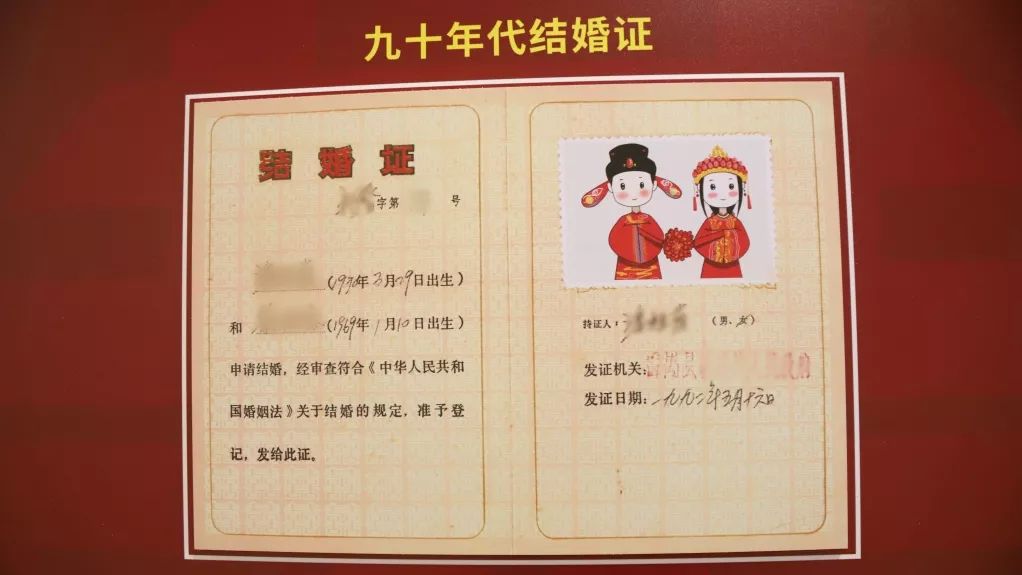 九十年代结婚证
结婚证
字第 号
(19 年3月29日出生)
和 (1969年1月10日出生)
申请结婚，经审查符合《中华人民共和
国婚姻法》关于结婚的规定，准予登
记，发给此证。
持证人： (男、女)
发证机关：
发证日期：一九九二年五月十六日